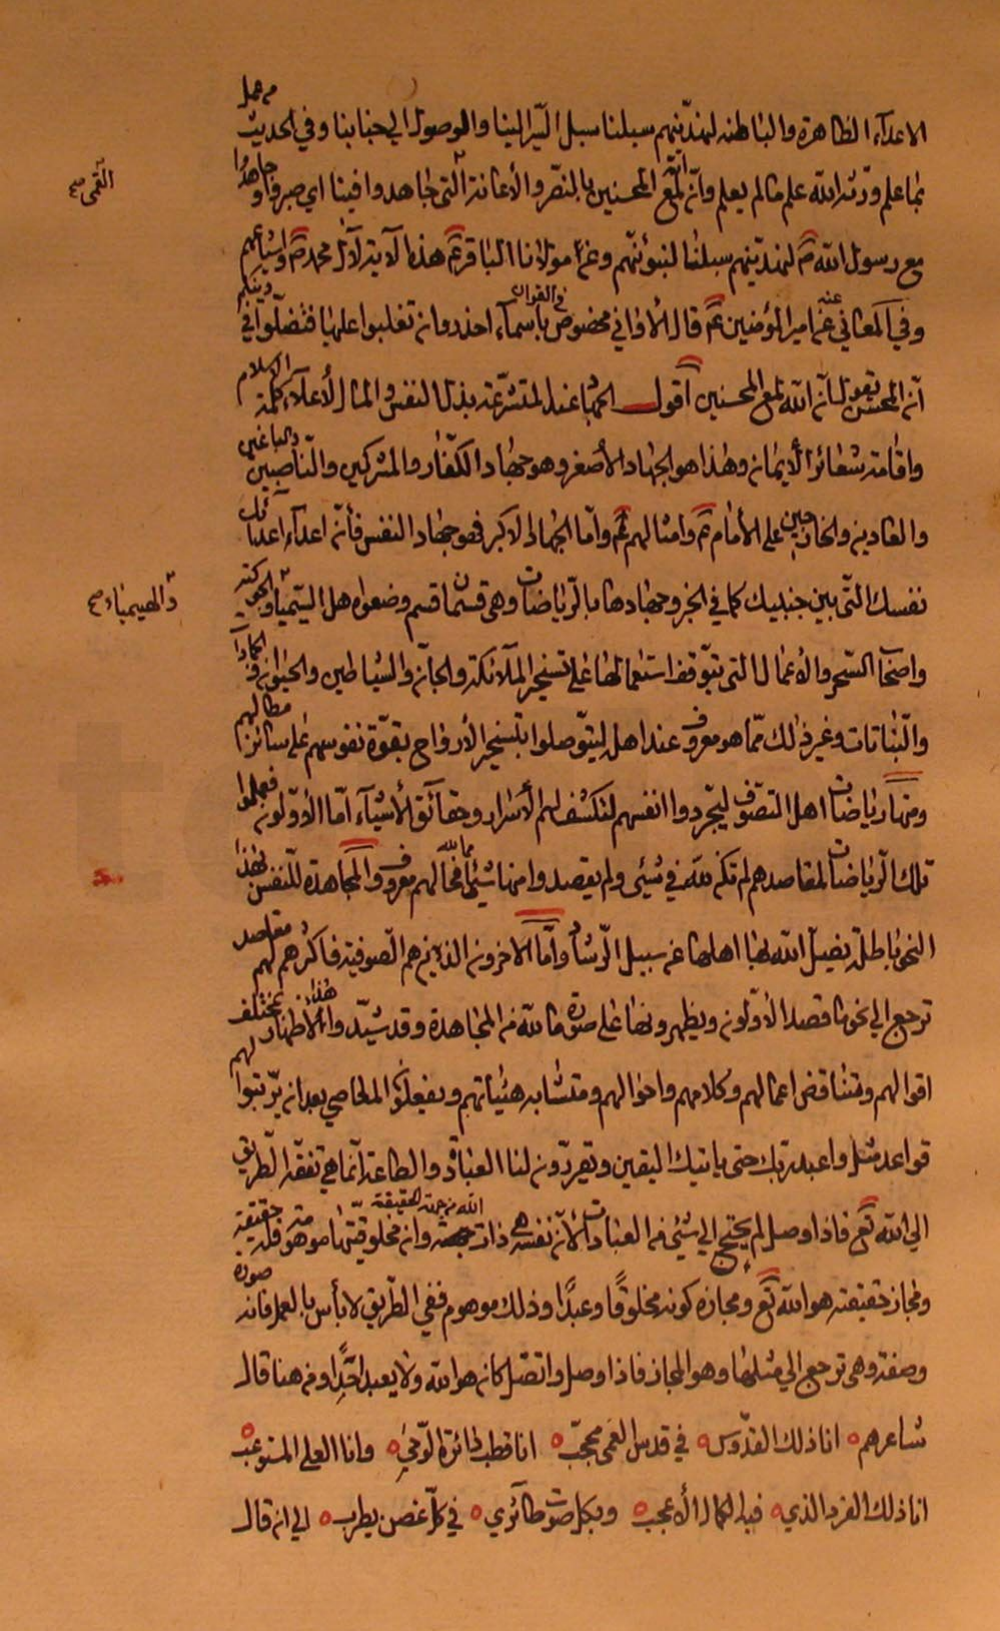 الاعدآء الظاهرة والباطنه لنهدينّهم سبلنا سبل السّير الينا والوصول الي جنابنا وفي الحديث من عمل
بما علم ورّثه الله علم ما لم يعلم وانّ الله لمع المحسنين بالنصر والأعانة القمّى جاهدوا فينا اي صبروا وجاهدوا
القمى صح
مع رسول الله ص لنهدينّهم سبلنا لنثبتنّهم وعن مولانا الباقر ع هذه الآية لآل محمد ص واشياعهم
وفي المعاني عنه عن امير المؤمنين ع قال الا واني مخصوص في القران باسمآء احذروا ان تغلبوا عليها فتضلّوا في دينكم
انا المحسن يقول انّ الله لمع المحسنين اقول الجهاد عند المتشرّعة بذل النفس والمال لأعلآء كلمة الاسلام
واقامة شعائر الأيمان وهذا هو الجهاد الأصغر وهو جهاد الكفّار والمشركين والنّاصبين والباغين
والعادين والخارجين على الأمام ع وامثالهم وامّا الجهاد الاكبر فهو جهاد النفس فأنّه اعدآء اعدآئك
نفسك التّى بين جنبيك كما في الخبر وجهادها بالرّياضات وهى قسمان قسم وضعوه اهل السّيميا
والهيمياء صح
واصحاب السّحر والأعمال التى يتوقف استعمالها على تسخير الملآئكة والجآن والشياطين والحيوان والجمادات
والنّباتات وغير ذلك ممّا هو معروف عند اهله ليتوّصلوا بتسخير الأرواح بقوّة نفوسهم على سائر مطالبهم
ومنها رياضات اهل التصوّف ليتجردوا انفسهم لتنكشف لهم الأسرار وحقآئق الأشيآء امّا الأوّلون فعملوا
تلك الرّياضات لمقاصدهم لم تكن لله في شئى ولم يقصدوا منها شيئا ممّا لله فحالهم معروف والمجاهدة للنّفس بهذا
النحو باطلة يضلّ الله بها اهلها عن سبيل الرّشاد وامّا الاخرون الذين هم الصوفية فاكثرهم لهم مقاصد
ترجع الي نحو ما قصد الأوّلون ويظهرونها على صورة ما لله من المجاهدة وقد شيّدوا هذا الأظهار بمختلف
اقوالهم ومتناقض اعمالهم وكلامهم واحوالهم ومتشابه هيئياتهم ويفعلون المعاصي بعد ان يرّتبوا لهم
قواعد مثل واعبد ربّك حتى ياتيك اليقين ويقرّرون لنا العبادة والطاعة انّما هي تفقّه الطّريق
الي الله تع فاذا وصل لم يحتج الي شئى من العبادات لأنّ نفسه هي ذات الله من جهة الحقيقة وان مخلوقيّتها موهومة فله حقيقة
ومجاز حقيقته هو الله تع ومجازه كونه مخلوقًا وعبدًا وذلك موهوم ففي الطّريق لا بأس بالعمل فانه صورة
وصفة وهى ترجع الي مثلها وهو المجاز فاذا وصل واتصل كان هو الله ولا يعبد احدًا ومن هنا قال
شاعرهم انا ذلك القدّوس في قدس العمى محجّب انا قطب دائرة الرّحى وانا العلى المستوعب
انا ذلك الفرد الذي فيه الكمال الأعجب وبكل صوت طائري في كلّ غصن يطرب الي ان قال